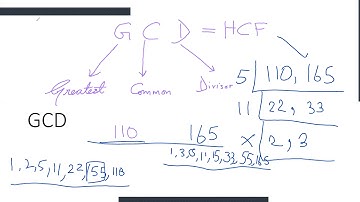 G C D = HCF
Greatest Common Divisor
5 110, 165
11 22, 33
x 2, 3
GCD
110 165
1,2,5,11,22,55,110
1,3,5,11,15,33,55,165